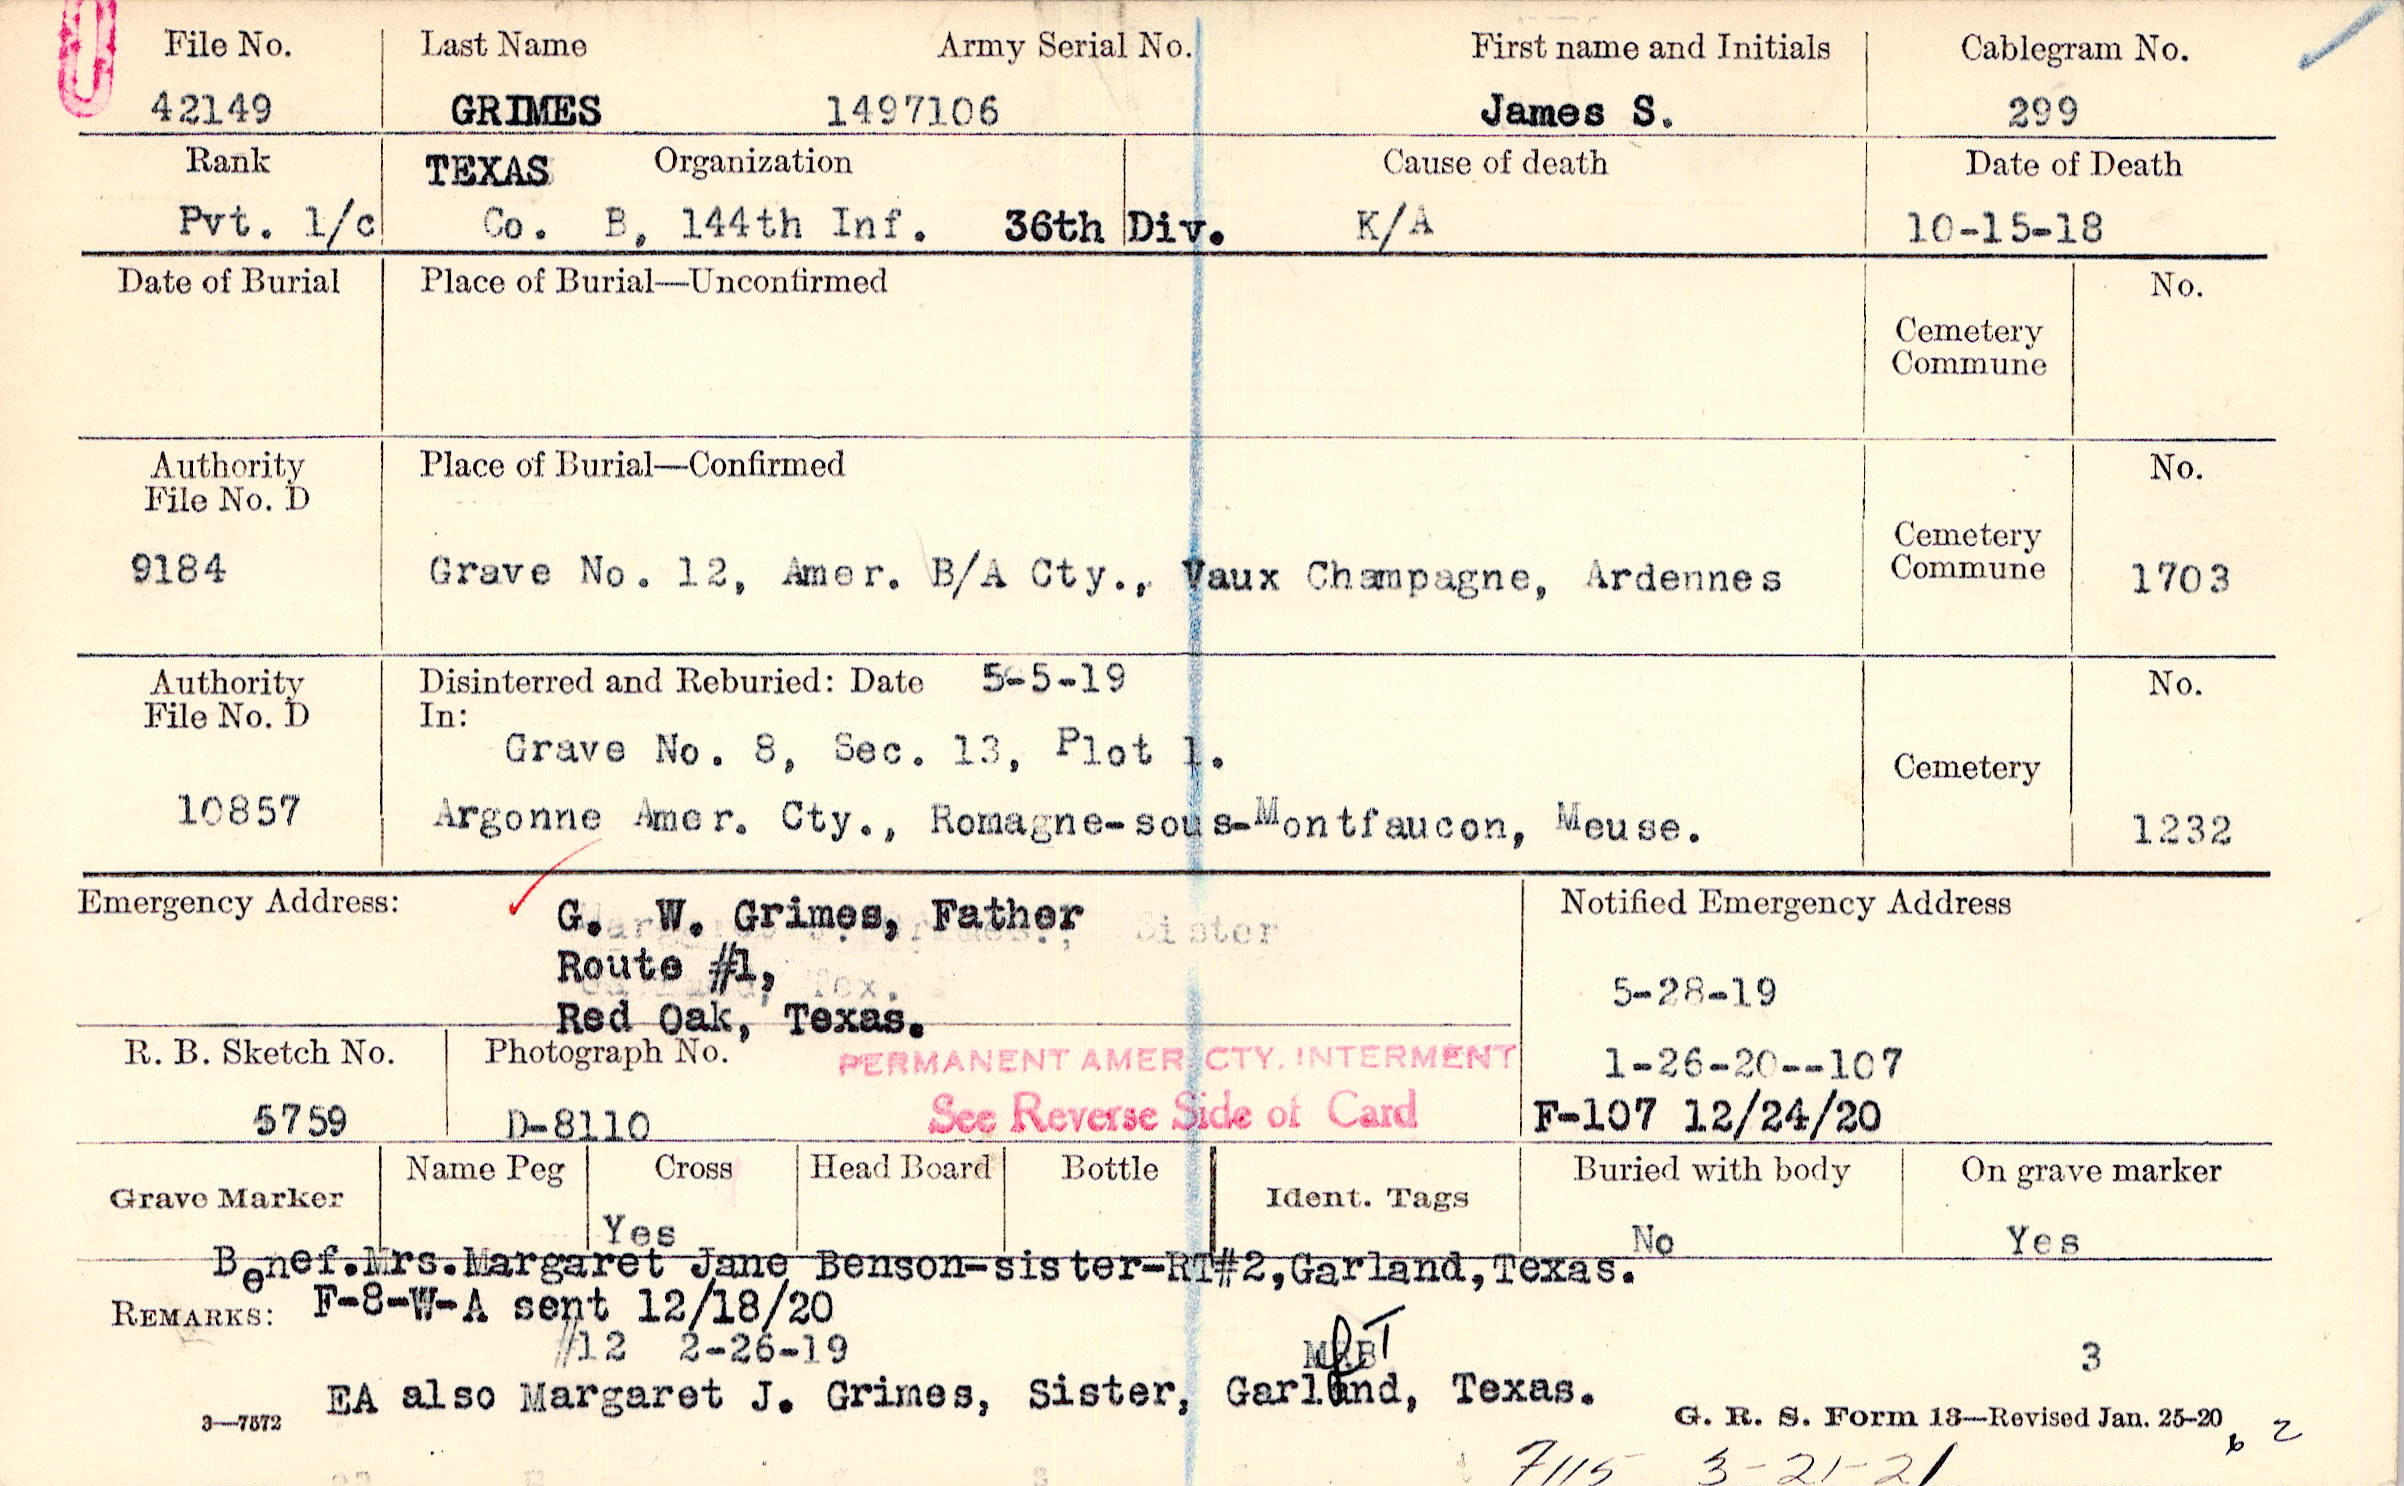 File No. Last Name Army Serial No. First name and Initials Cablegram No.
42149 GRIMES 1497106 James S. 299
Rank TEXAS Organization Cause of death Date of Death
Pvt. 1/c Co. B, 144th Inf. 36th Div. K/A 10-15-18
Date of Burial Place of Burial—Unconfirmed No.
Cemetery
Commune
Authority Place of Burial—Confirmed No.
File No. D
Cemetery
9184 Grave No. 12, Amer. B/A Cty., Vaux Champagne, Ardennes Commune 1703
Authority Disinterred and Reburied: Date 5-5-19 No.
File No. D In:
Grave No. 8, Sec. 13, Plot 1.
Cemetery
10857 Argonne Amer. Cty., Romagne-sous-Montfaucon, Meuse. 1232
Emergency Address: G. W. Grimes, Father Notified Emergency Address
Sister
Route #1,
Tex. 5-28-19
Red Oak, Texas.
R. B. Sketch No. Photograph No. PERMANENT AMER CTY. INTERMENT 1-26-20--107
5759 D-8110 See Reverse Side of Card F-107 12/24/20
Grave Marker Name Peg Cross Head Board Bottle Ident. Tags Buried with body On grave marker
Yes No Yes
Benef.Mrs.Margaret Jane Benson-sister-RT#2,Garland,Texas.
REMARKS: F-8-W-A sent 12/18/20
#12 2-26-19 3
EA also Margaret J. Grimes, Sister, Garland, Texas.
3—7572 G. R. S. Form 13—Revised Jan. 25-20
7115 3-21-21